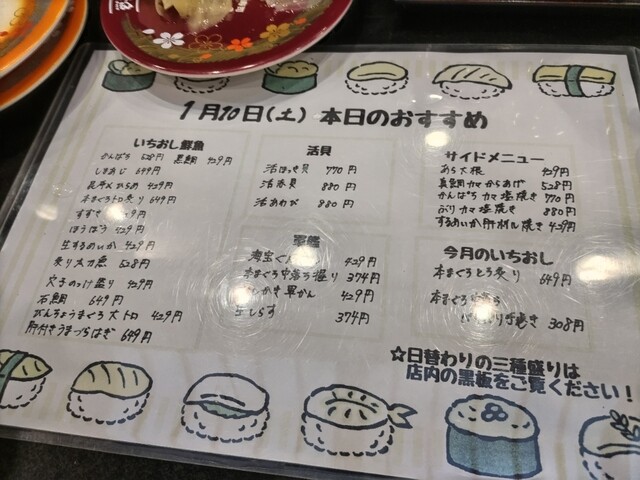 1月10日(土) 本日のおすすめ
いちおし鮮魚
かんぱち 528円 黒鯛 429円
しまあじ 649円
昆布〆ひらめ 429円
本まぐろトロ炙り 649円
すずき
ほうぼう 429円
生するめいか 429円
炙り太刀魚 528円
穴子のっけ盛り 429円
石鯛 649円
びんちょうまぐろ大トロ 429円
肝付きうまづらはぎ 649円
活貝
活ほっき貝 770円
活赤貝 880円
活あわび 880円
軍艦
429円
本まぐろ中落ち握り 374円
軍かん 429円
生しらす 374円
サイドメニュー
あら大根 429円
真鯛カマからあげ 528円
かんぱちカマ塩焼き 770円
ぶりカマ塩焼き 880円
するめいか肝ホイル焼き 429円
今月のいちおし
本まぐろとろ炙り 649円
本まぐろ中落ち
手巻き 308円
☆日替わりの三種盛りは
店内の黒板をご覧ください!